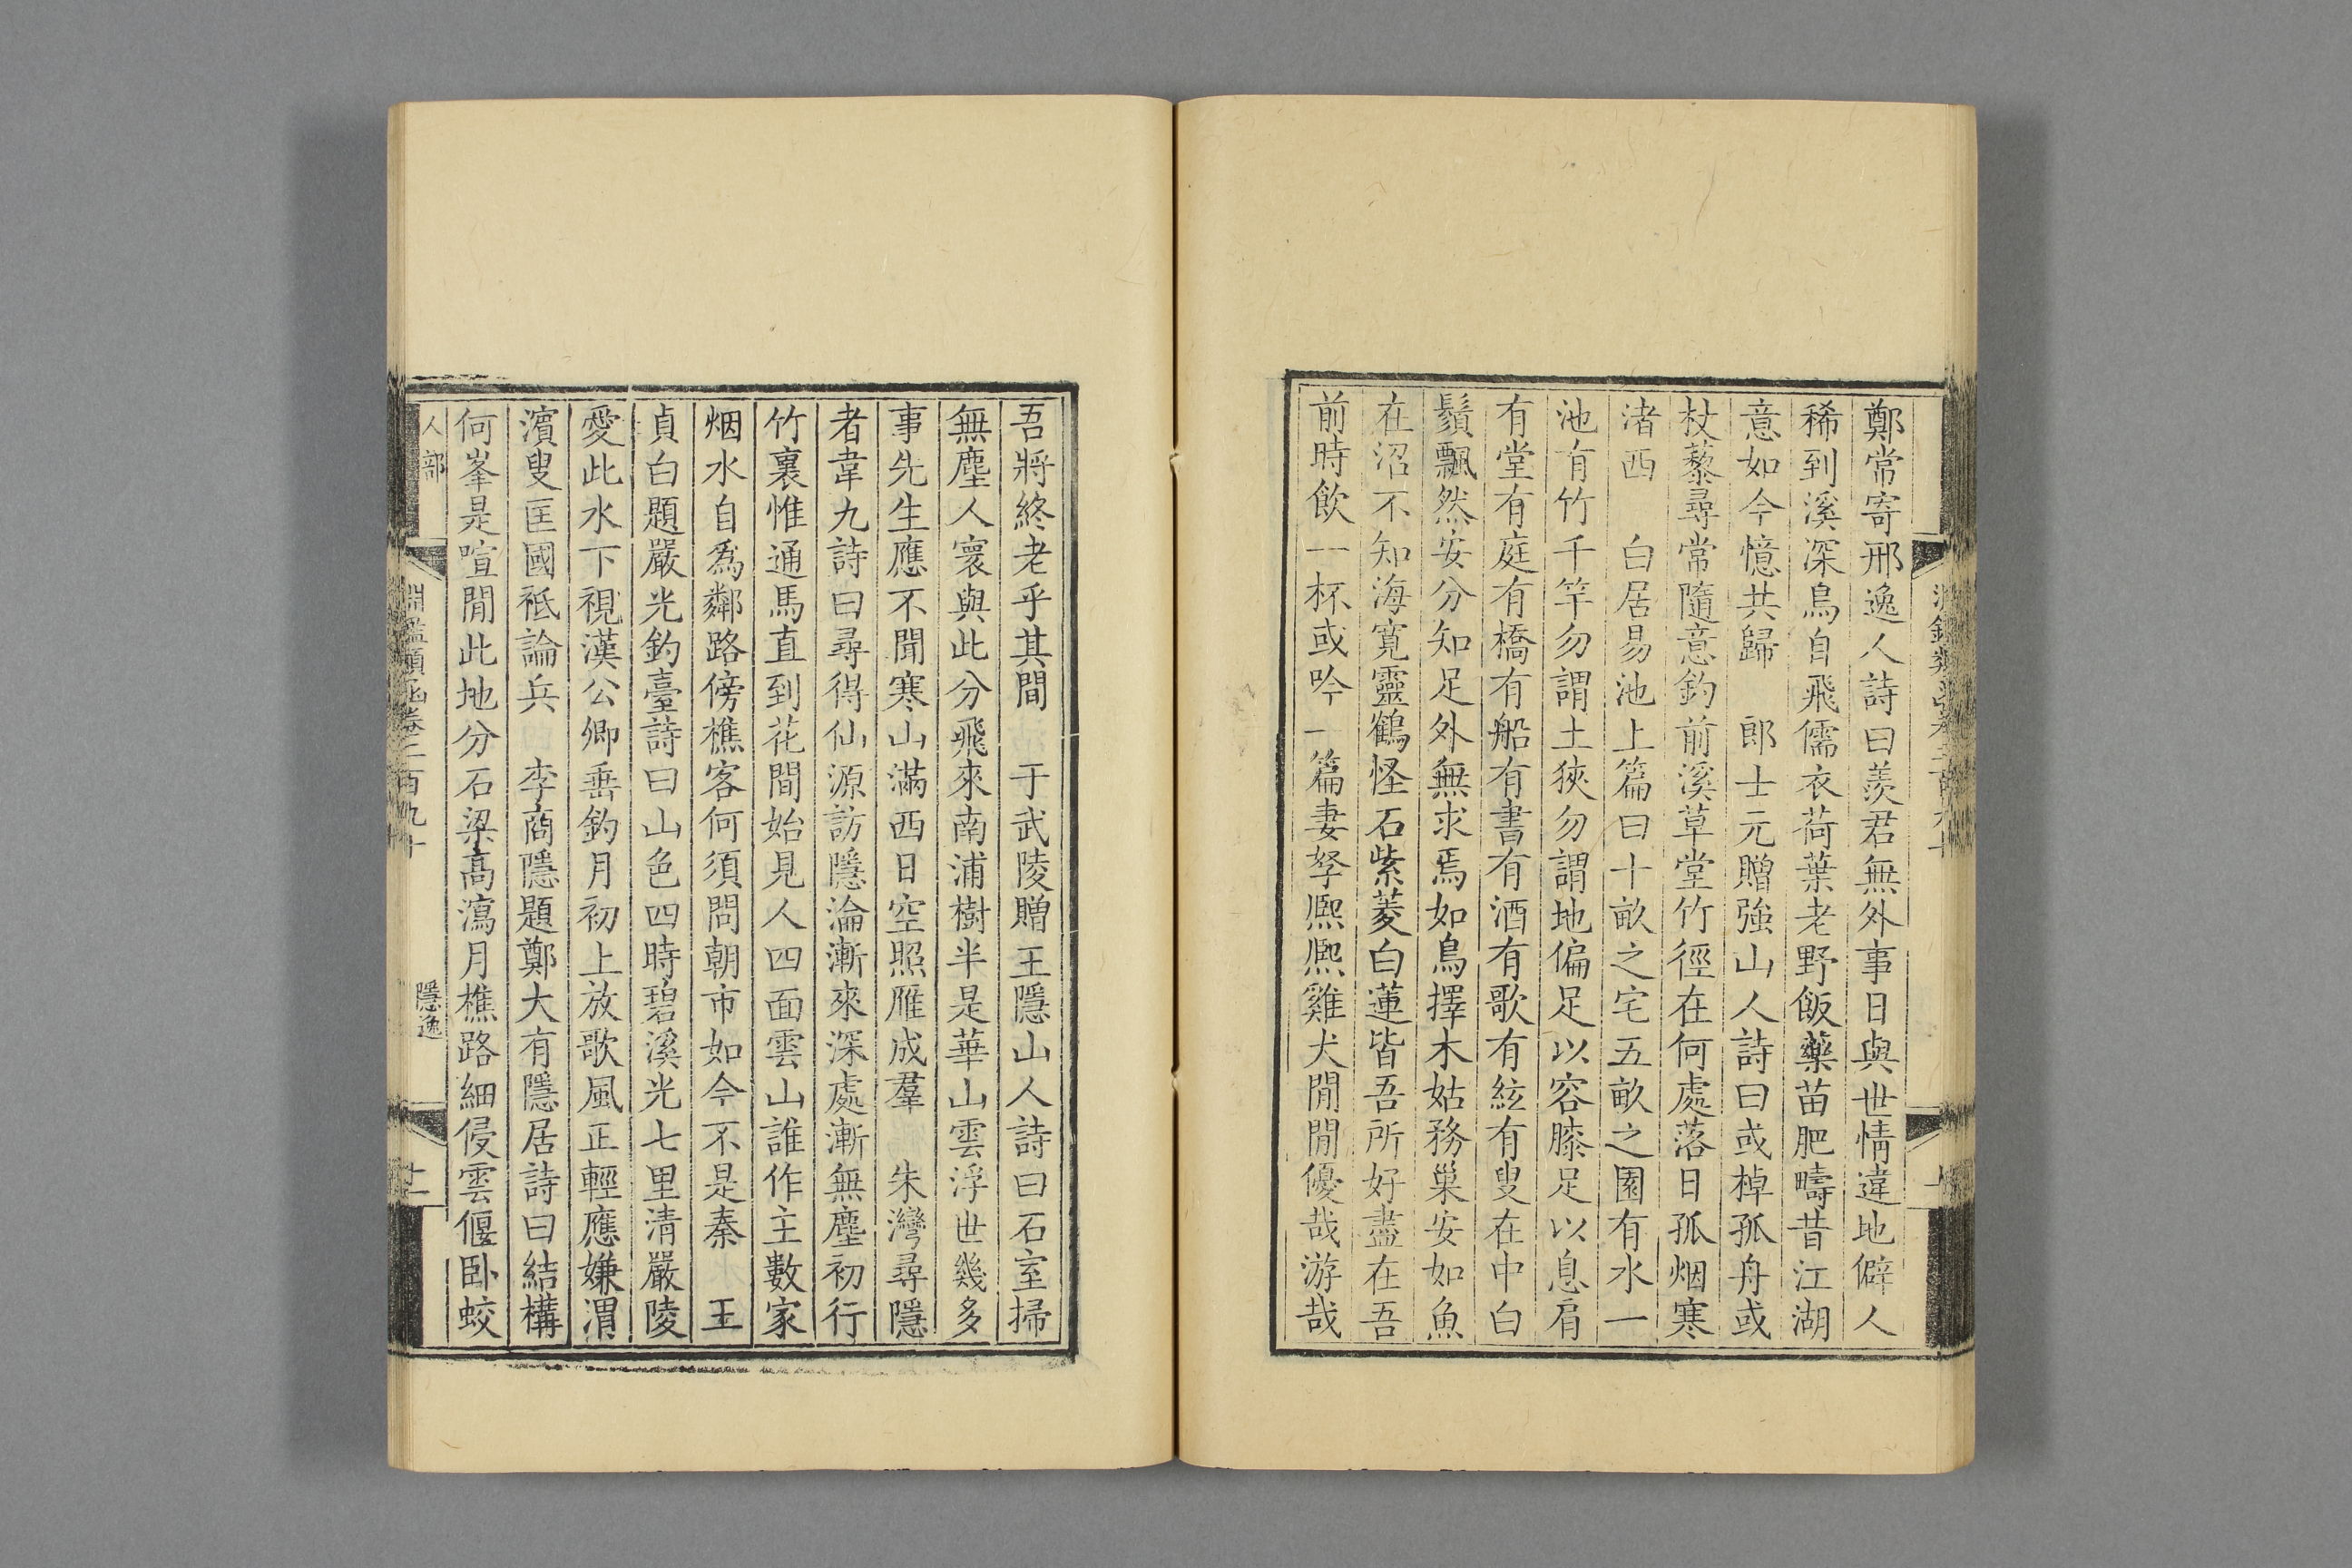 鄭常寄邢逸人詩曰羨君無外事日與世情違地僻人
稀到溪深鳥自飛儒衣荷葉老野飯藥苗肥疇昔江湖
意如今憶共歸　郎士元贈強山人詩曰或棹孤舟或
杖藜尋常隨意釣前溪草堂竹徑在何處落日孤烟寒
渚西　白居易池上篇曰十畝之宅五畝之園有水一
池有竹千竿勿謂土狹勿謂地偏足以容膝足以息肩
有堂有庭有橋有船有書有酒有歌有絃有叟在中白
鬚飄然安分知足外無求焉如鳥擇木姑務巢安如魚
在沼不知海寬靈鶴怪石紫菱白蓮皆吾所好盡在吾
前時飲一杯或吟一篇妻孥熈熈雞犬閒閒優哉游哉
吾將終老乎其間　于武陵贈王隱山人詩曰石室掃
無塵人寰與此分飛來南浦樹半是華山雲浮世幾多
事先生應不聞寒山滿西日空照雁成羣　朱灣尋隱
者韋九詩曰尋得仙源訪隱淪漸來深處漸無塵初行
竹裏惟通馬直到花間始見人四面雲山誰作主數家
烟水自爲鄰路傍樵客何須問朝市如今不是秦　王
貞白題嚴光釣臺詩曰山色四時碧溪光七里清嚴陵
愛此水下視漢公卿垂釣月初上放歌風正輕應嫌渭
濱叟匡國祗論兵　李商隱題鄭大有隱居詩曰結構
何峯是喧閒此地分石梁高瀉月樵路細侵雲偃卧蛟
人部
淵鑑類函卷二百九十
隱逸